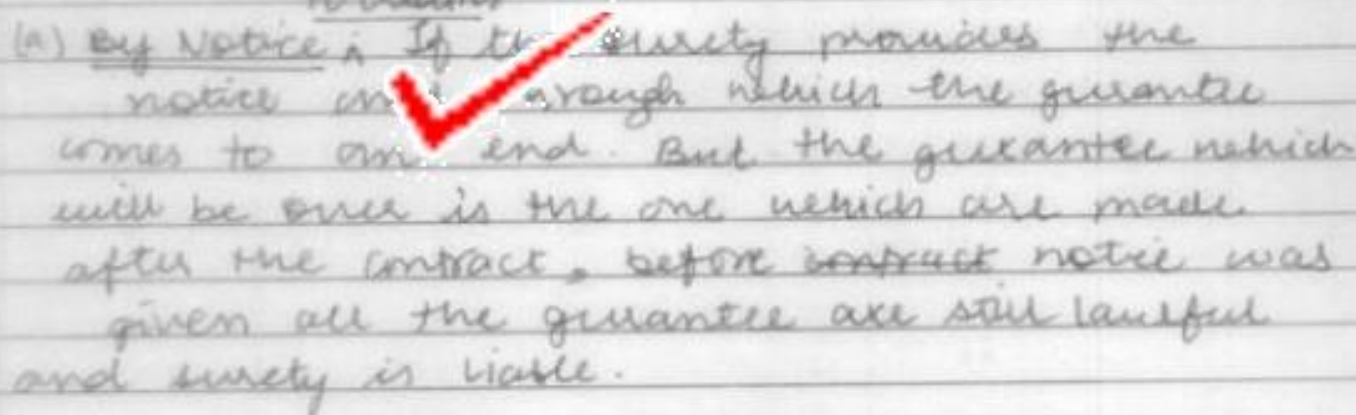 (a) By Notice : If the surety provides the
notice through which the gurantee
comes to an end. But the gurantee which
will be over is the one which are made
after the contract, before contract notice was
given all the gurantee are still lawful
and surety is liable.